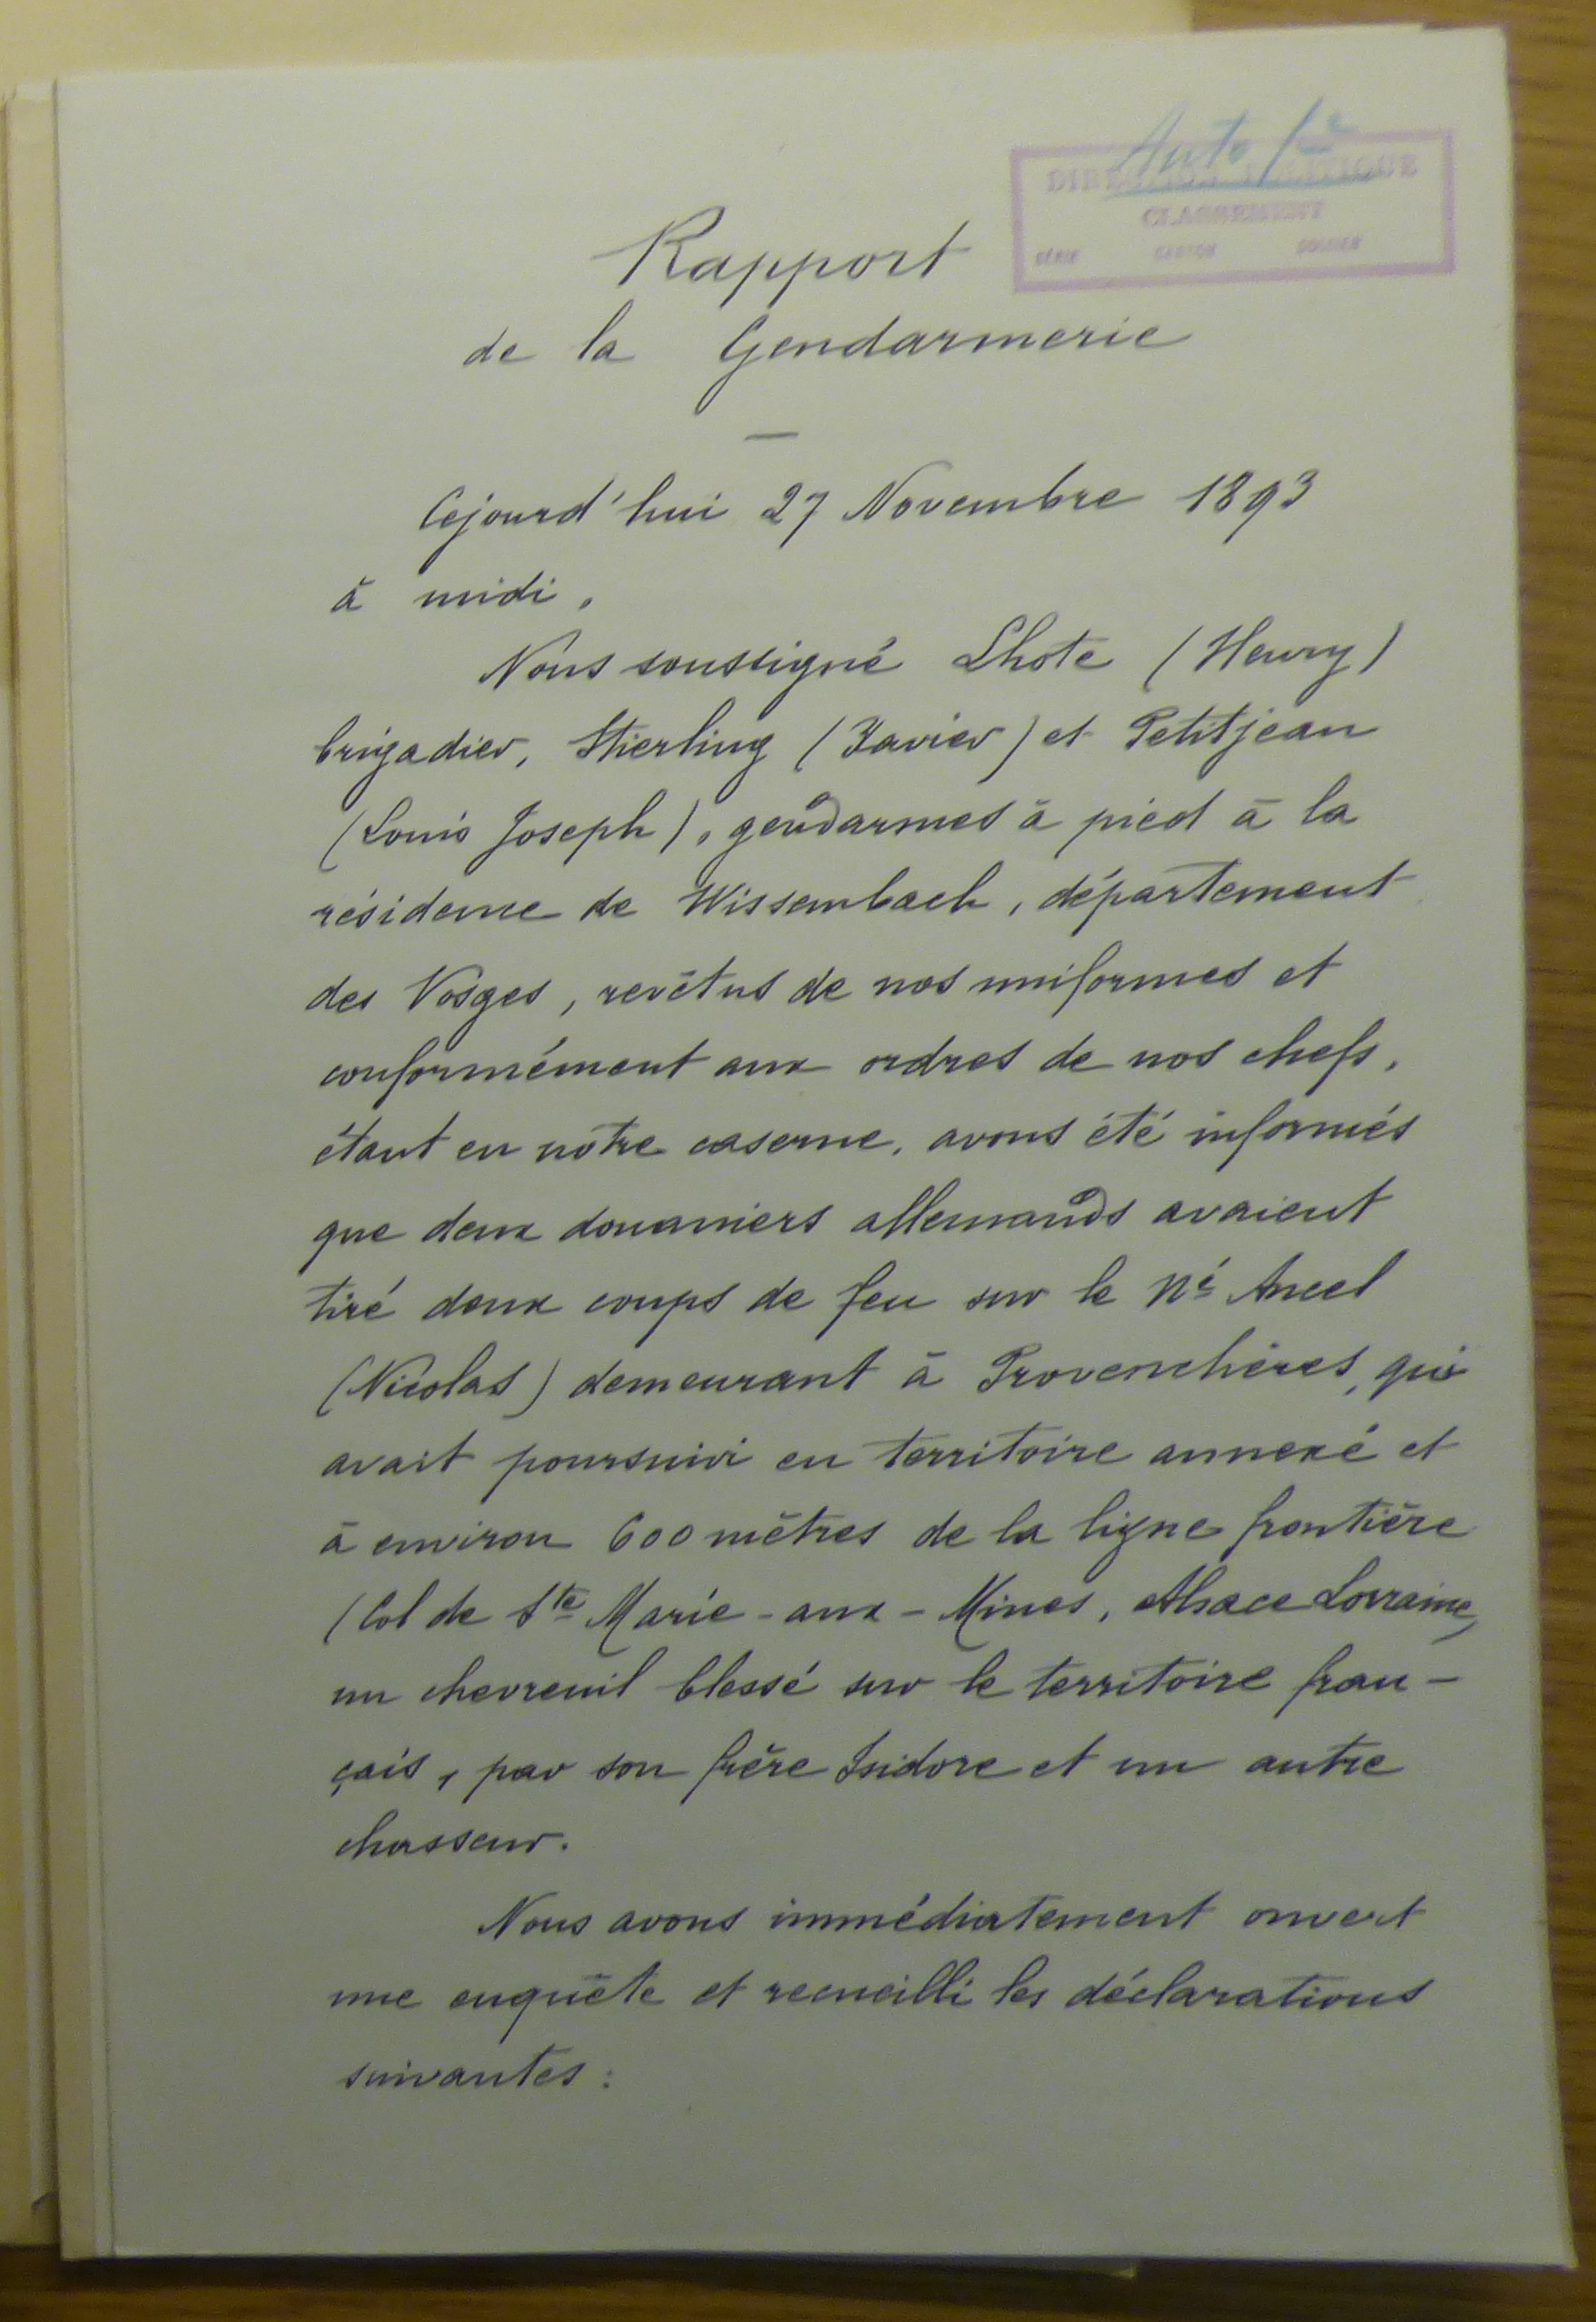 Auto
DIRECTION POLITIQUE
CLASSEMENT
SÉRIE CARTON DOSSIER
Rapport
de la Gendarmerie
—
Cejourd'hui 27 Novembre 1893
à midi,
Nous soussigné Lhote (Henry)
brigadier, Stierling (Xavier) et Petitjean
(Louis Joseph), gendarmes à pied à la
résidence de Wissembach, département
des Vosges, revêtus de nos uniformes et
conformément aux ordres de nos chefs,
étant en notre caserne, avons été informés
que deux douaniers allemands avaient
tiré deux coups de feu sur le né Ancel
(Nicolas) demeurant à Provenchères, qui
avait poursuivi en territoire annexé et
à environ 600 mètres de la ligne frontière
(Col de Ste Marie-aux-Mines, Alsace Lorraine,
un chevreuil blessé sur le territoire fran-
çais, par son frère Isidore et un autre
chasseur.
Nous avons immédiatement ouvert
une enquête et recueilli les déclarations
suivantes :